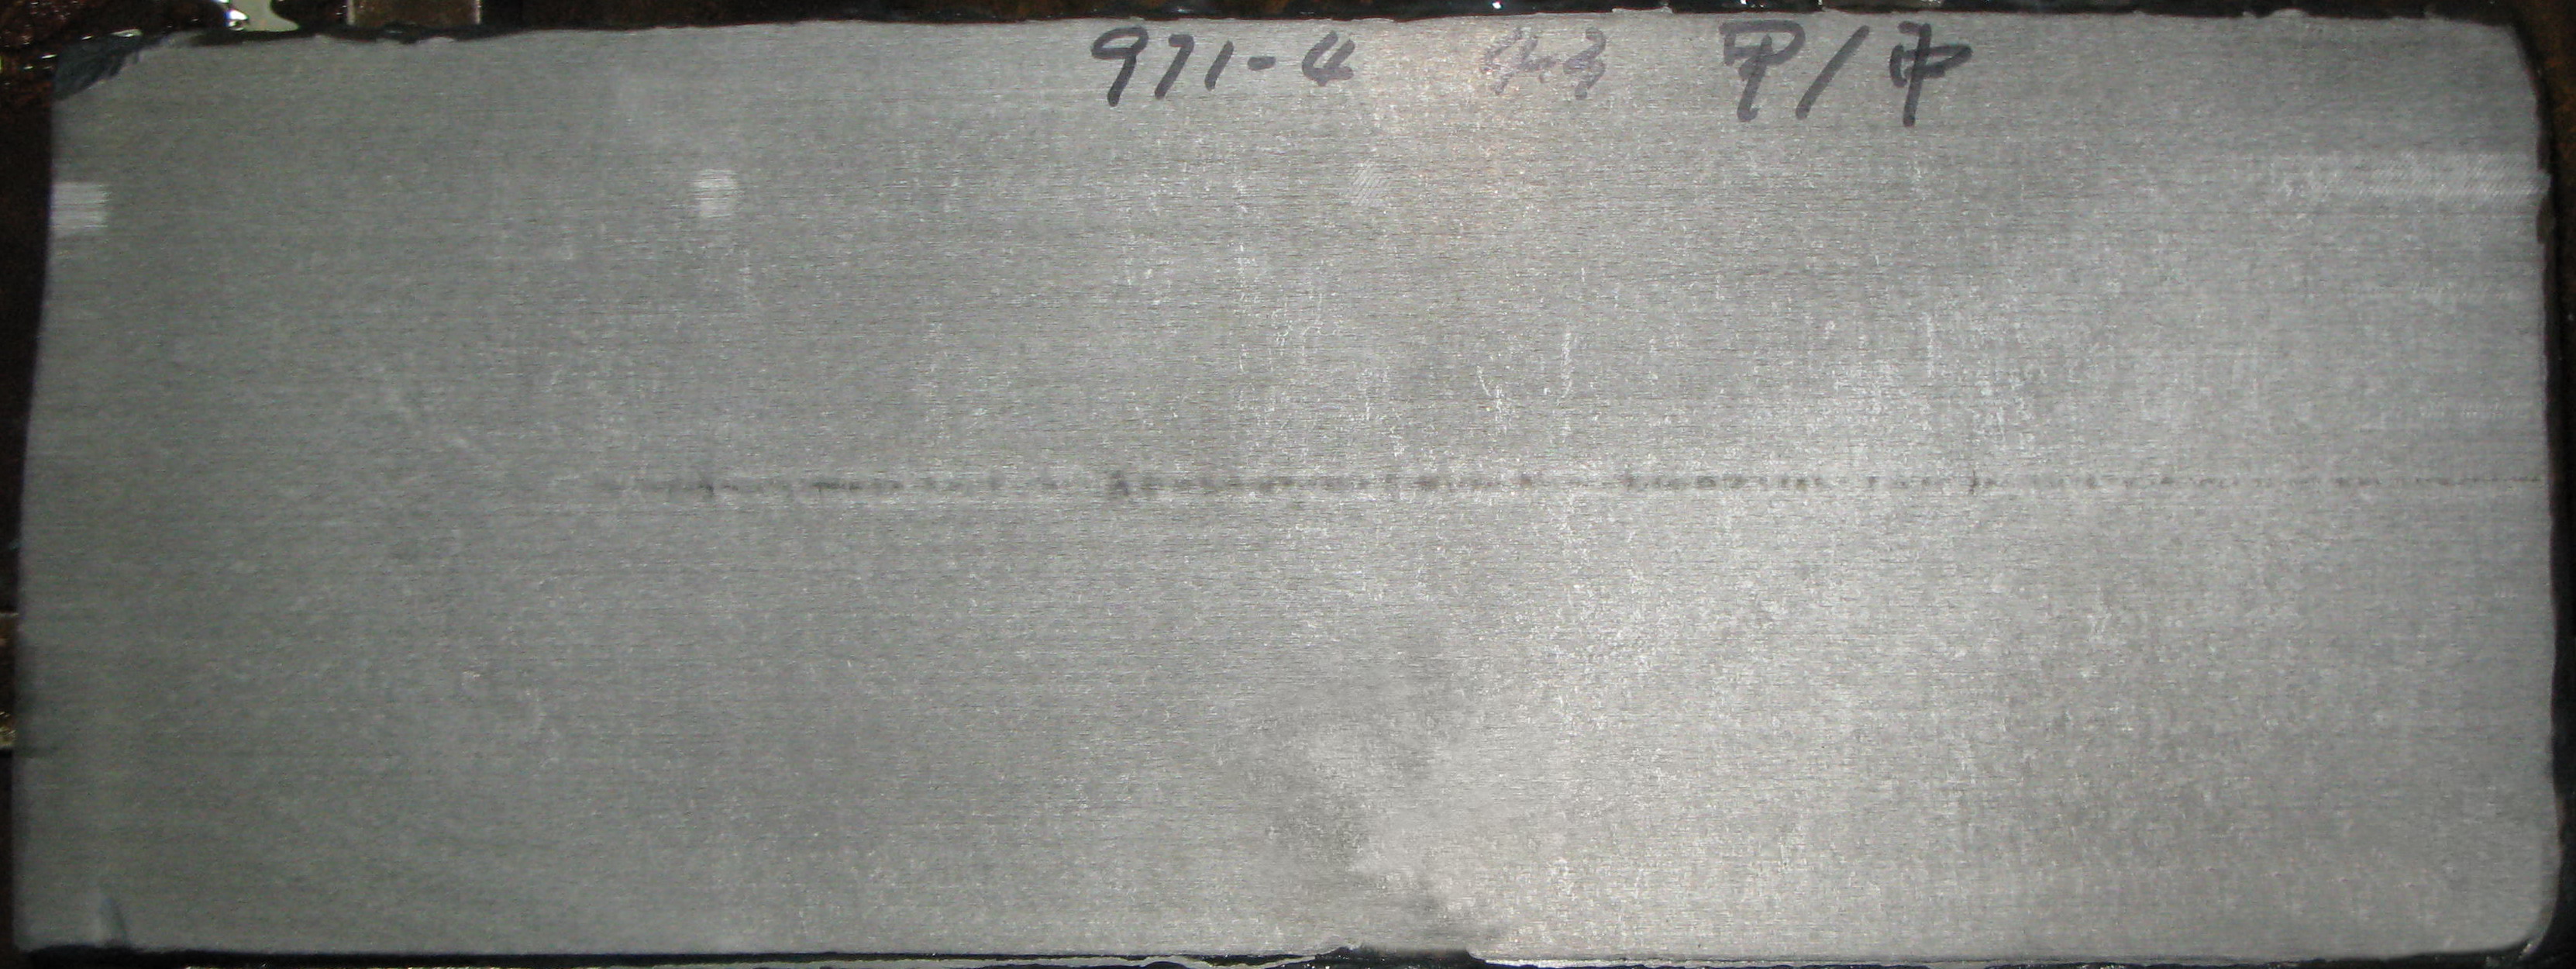 971-4 甲/中